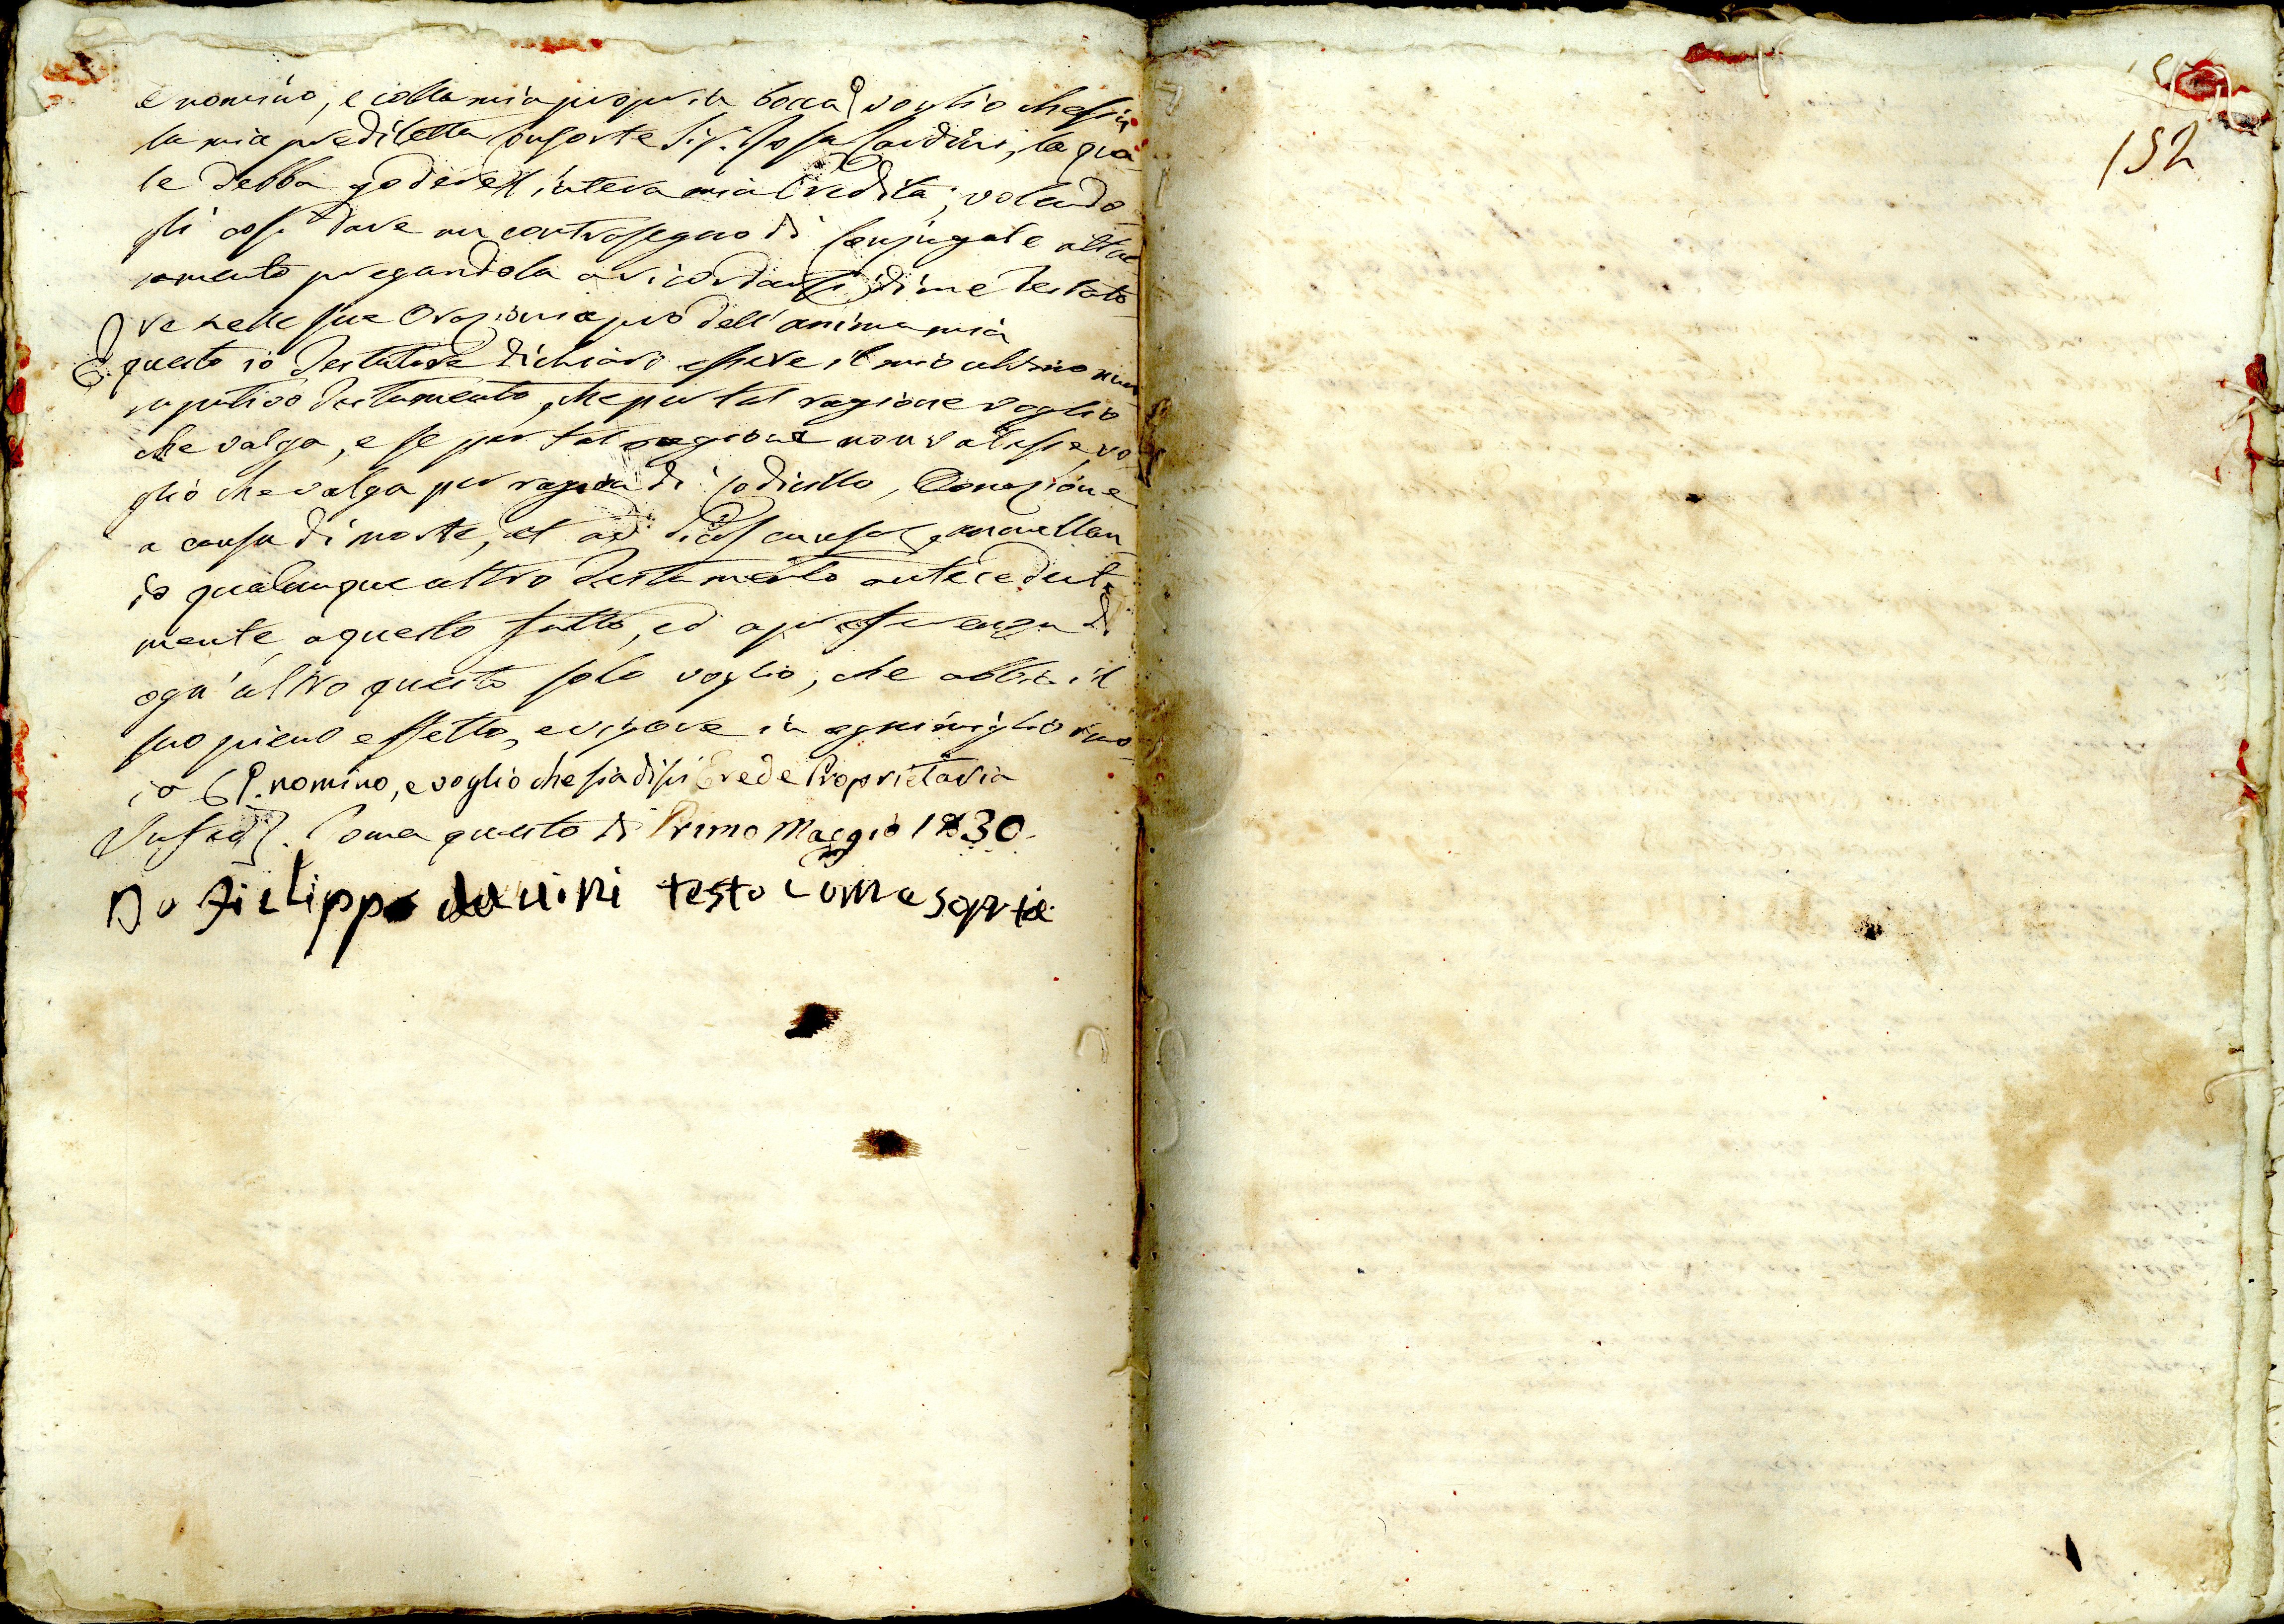 e nomino, e colla mia propria bocca voglio che sia
la mia prediletta Consorte Sig.a Rosa Cardini, la qua
le debba godere l'intera mia Eredità; volendo
gli così dare un contrasegno di Conjugale attac
camento pregandola a ricordarsi di me Testato
re nelle sue Orazioni a prò dell'anima mia
E questo io Testatore dichiaro essere il mio ultimo nun
cupativo Testamento, che per tal ragione voglio
che valga, e se per tal ragione non valesse vo
glio che valga per ragion di Codicillo, Donazione
a causa di morte, et ad Pias causas, annullan
do qualunque altro Testamento antecedente
mente a questo fatto, ed a preferenza di
ogn'altro questo solo voglio, che abbia il
suo pieno effetto, e vigore in ogni miglior mo
do P. nomino, e voglio che sia di piú Erede Proprietaria
Roma questo dì Primo Maggio 1830.
Io Filippo testo Come sopra
152